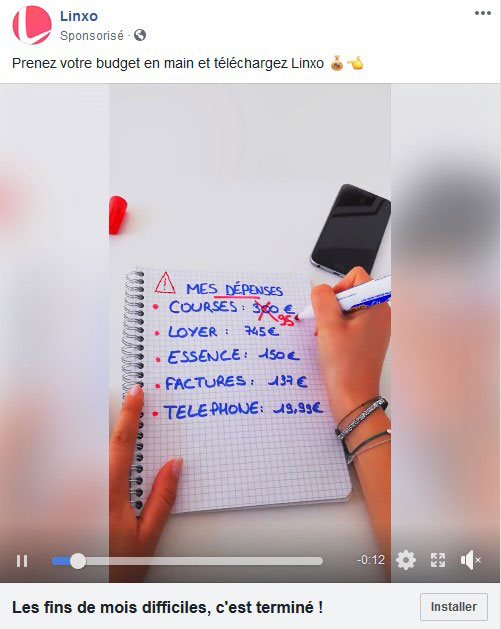 Linxo
Sponsorisé ·
Prenez votre budget en main et téléchargez Linxo
MES DÉPENSES
COURSES: 300 €
95
LOYER : 745 €
ESSENCE: 150 €
FACTURES: 137 €
TELEPHONE: 19,99 €
-0:12
Les fins de mois difficiles, c'est terminé !
Installer